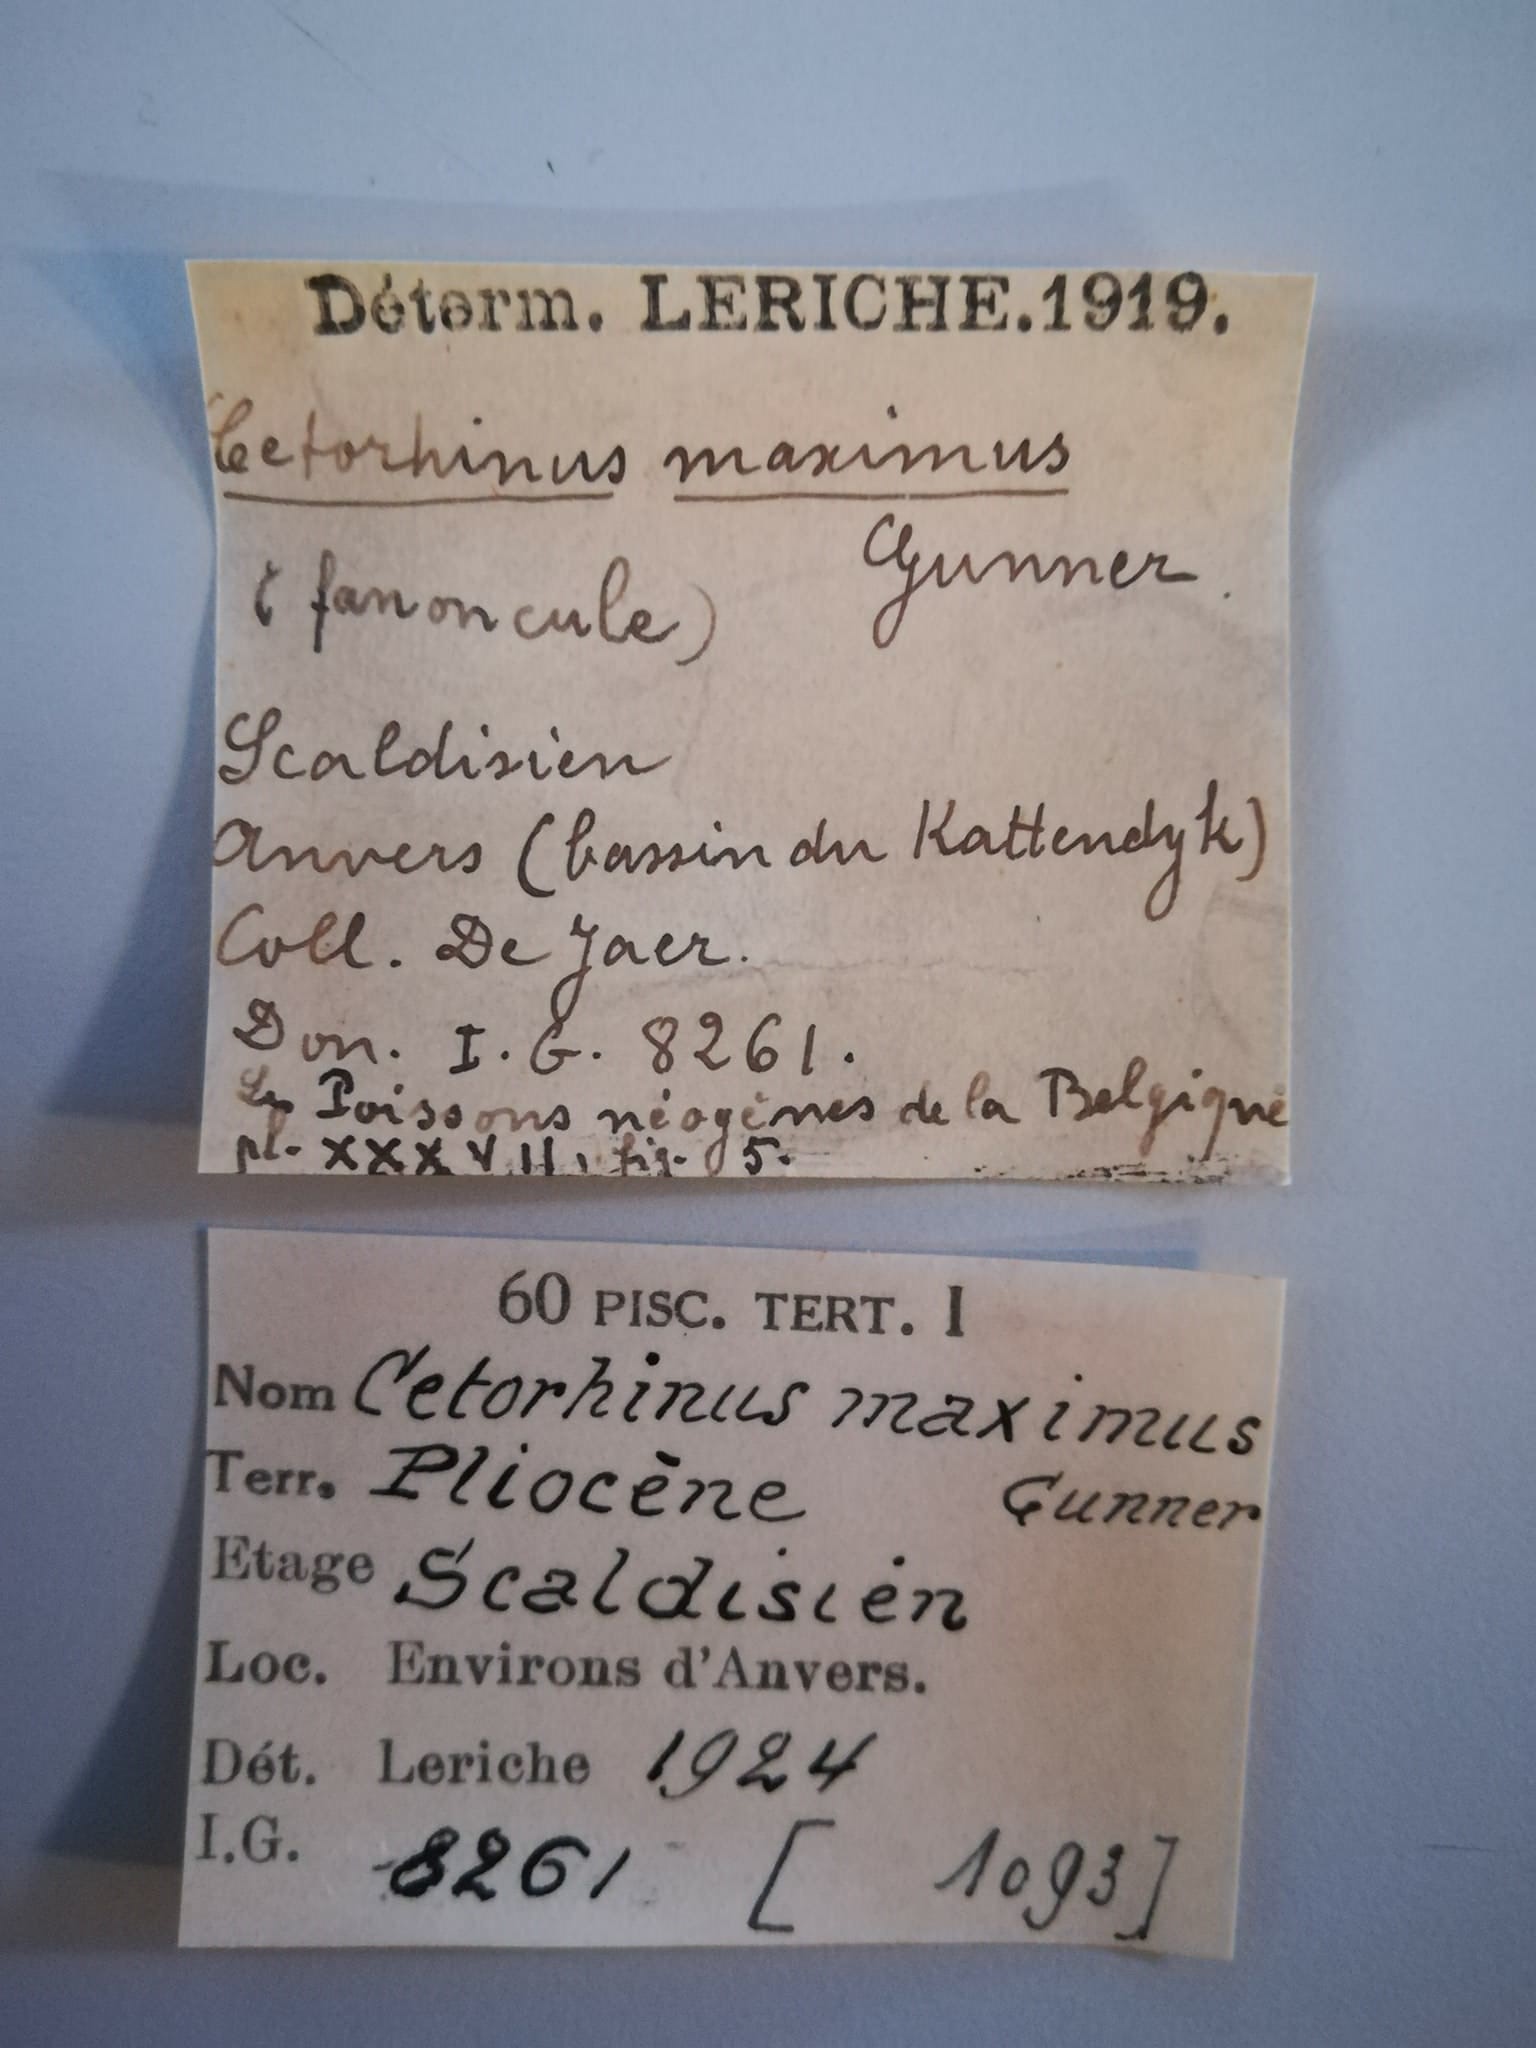 Déterm. LERICHE.1919.
Cetorhinus maximus
Gunner.
( fanoncule)
Scaldisien
Anvers (bassin du Kattendyk)
Coll. De Jaer.
Don. I.G. 8261.
Les Poissons néogènes de la Belgique
pl. XXXVII, fig. 5.
60 PISC. TERT. I
Nom Cetorhinus maximus
Terr. Pliocène Gunner
Etage Scaldisien
Loc. Environs d'Anvers.
Dét. Leriche 1924
I.G. 8261 [ 1093]